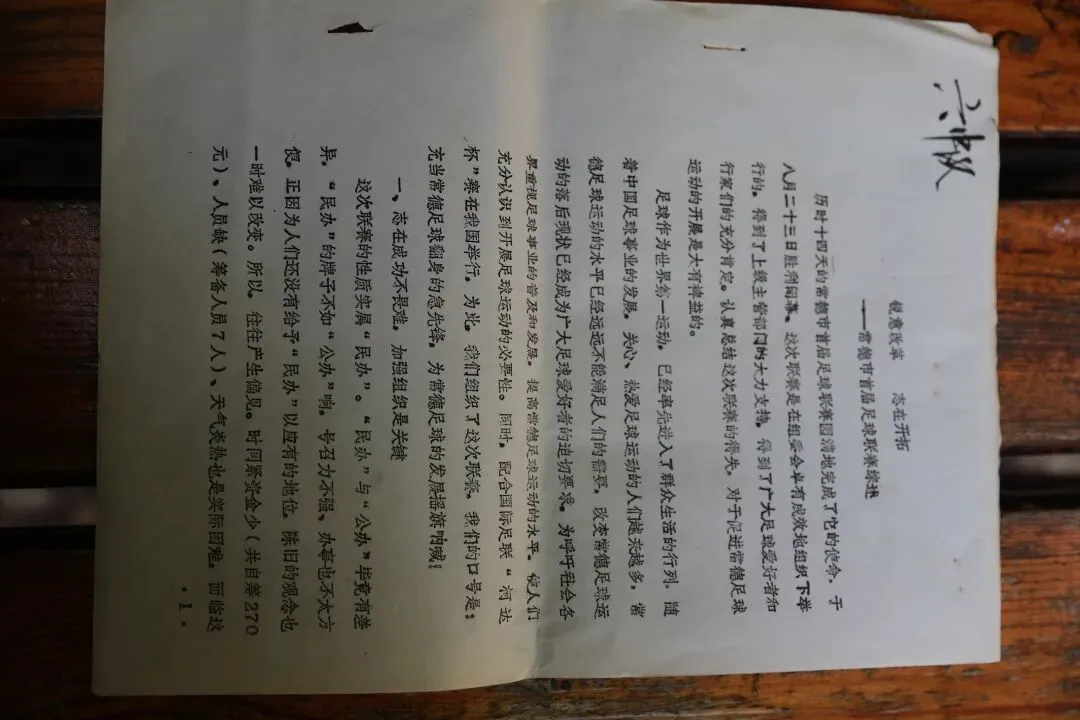 锐意改革　志在开拓
——常德市首届足球联赛综述
历时十四天的常德市首届足球联赛圆满地完成了它的使命。于
八月二十三日胜利闭幕。这次联赛是在组委会卓有成效地组织下举
行的。得到了上级主管部门的大力支持。得到了广大足球爱好者和
行家们的充分肯定。认真总结这次联赛的得失。对于促进常德足球
运动的开展是大有裨益的。
足球作为世界第一运动。已经率先进入了群众生活的行列。随
着中国足球事业的发展。关心、热爱足球运动的人们越来越多。常
德足球运动的水平已经远远不能满足人们的需要。改变常德足球运
动的落后现状已经成为广大足球爱好者的迫切要求。为呼吁社会各
界重视足球事业的普及和发展。提高常德足球运动的水平。使人们
充分认识到开展足球运动的必要性。同时。配合国际足联“柯达
杯”赛在我国举行。为此。我们组织了这次联赛。我们的口号是：
充当常德足球翻身的急先锋。为常德足球的发展摇旗呐喊！
一、志在成功不畏难。加强组织是关键
这次联赛的性质实属“民办”。“民办”与“公办”毕竟有差
异。“民办”的牌子不如“公办”响。号召力不强、办事也不大方
便。正因为人们还没有给予“民办”以应有的地位。陈旧的观念也
一时难以改变。所以。往往产生偏见。时间紧资金少（共自筹270
元）、人员缺（筹备人员7人）、天气炎热也是实际困难。面临这
·1·